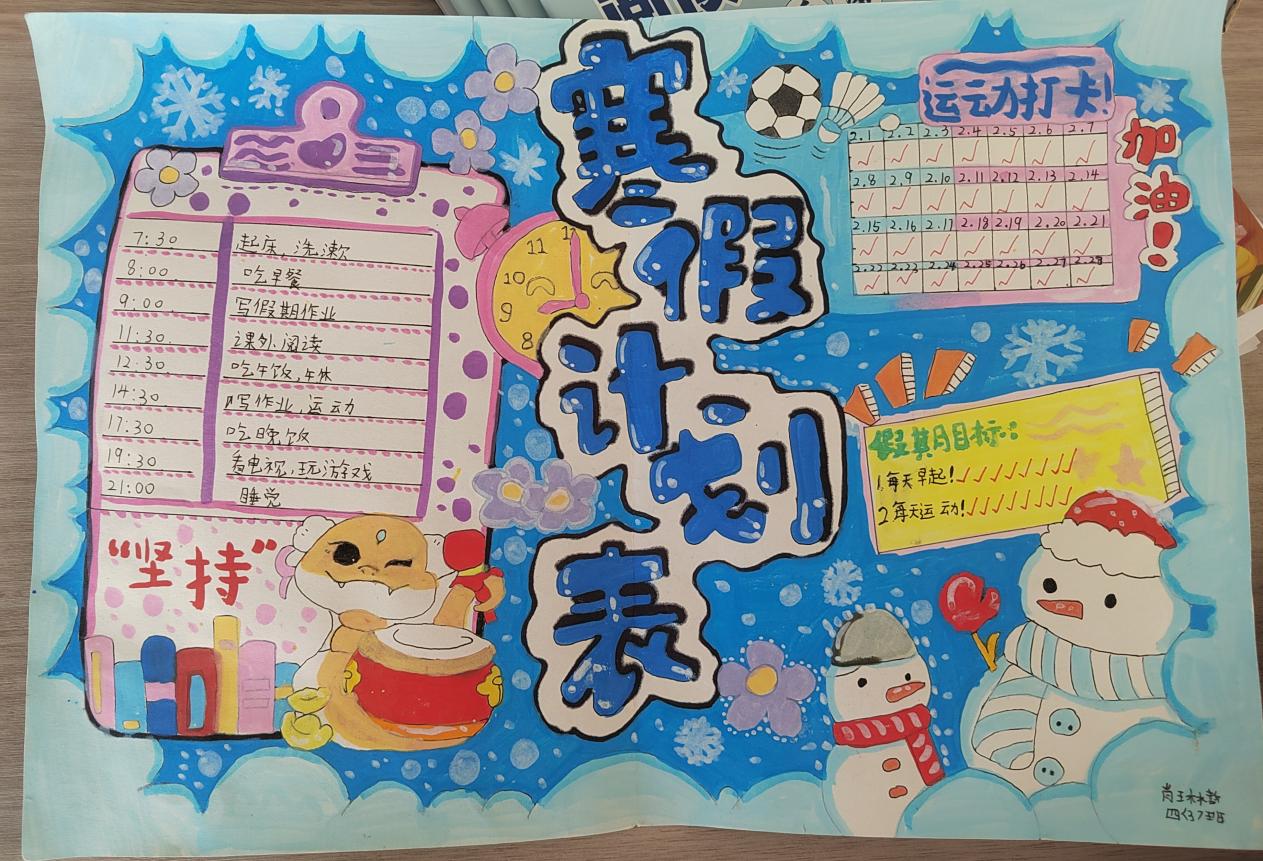 寒假计划表
7:30 起床、洗漱
8:00 吃早餐
9:00 写假期作业
11:30 课外阅读
12:30 吃午饭,午休
14:30 写作业,运动
17:30 吃晚饭
19:30 看电视,玩游戏
21:00 睡觉
“坚持”
11 1
10
9
8
运动打卡!
加油!
2.1 2.2 2.3 2.4 2.5 2.6 2.7
2.8 2.9 2.10 2.11 2.12 2.13 2.14
2.15 2.16 2.17 2.18 2.19 2.20 2.21
2.22 2.23 2.24 2.25 2.26 2.27 2.28
假期目标:
1,每天早起!
2每天运动!
四(3)班